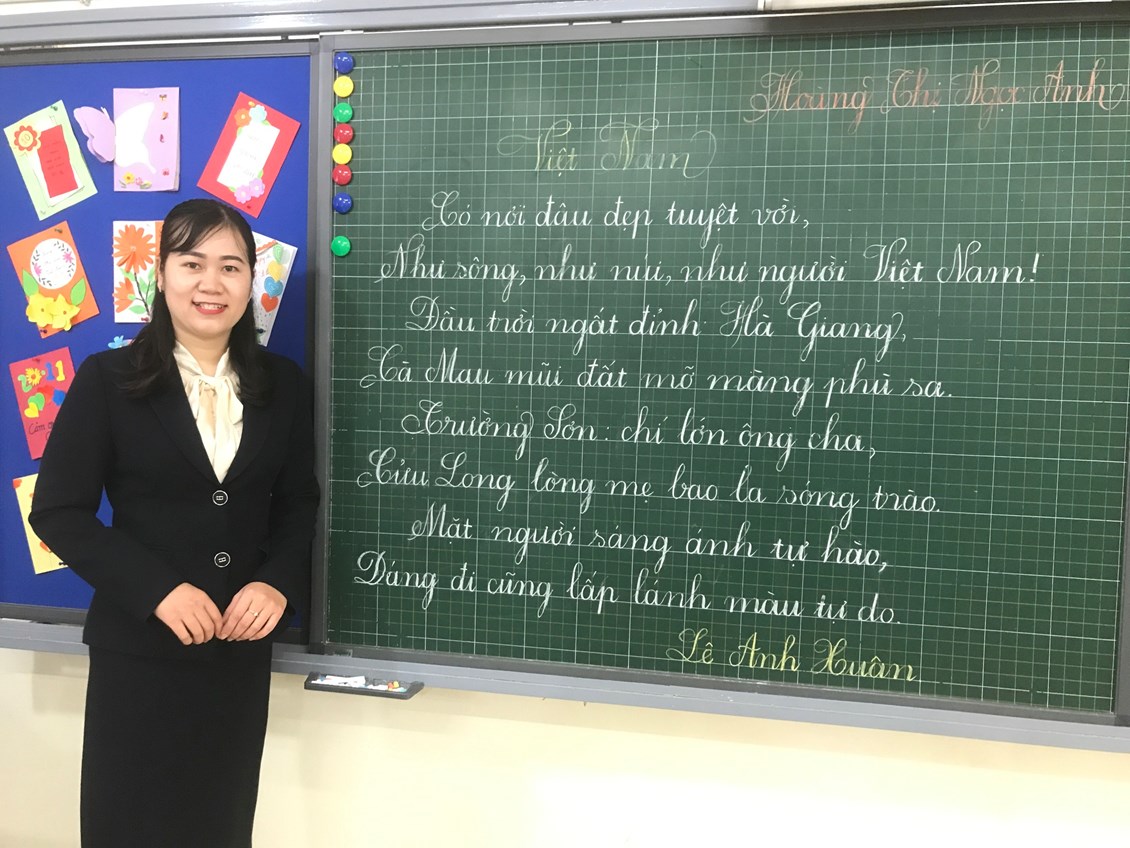 Hoàng Thị Ngọc Ánh
Việt Nam
Có nơi đâu đẹp tuyệt vời,
Như sông, như núi, như người Việt Nam!
Đầu trời ngất đỉnh Hà Giang,
Cà Mau mũi đất mỡ màng phù sa.
Trường Sơn: chí lớn ông cha,
Cửu Long lòng mẹ bao la sóng trào.
Mặt người sáng ánh tự hào,
Dáng đi cũng lấp lánh màu tự do.
Lê Anh Xuân